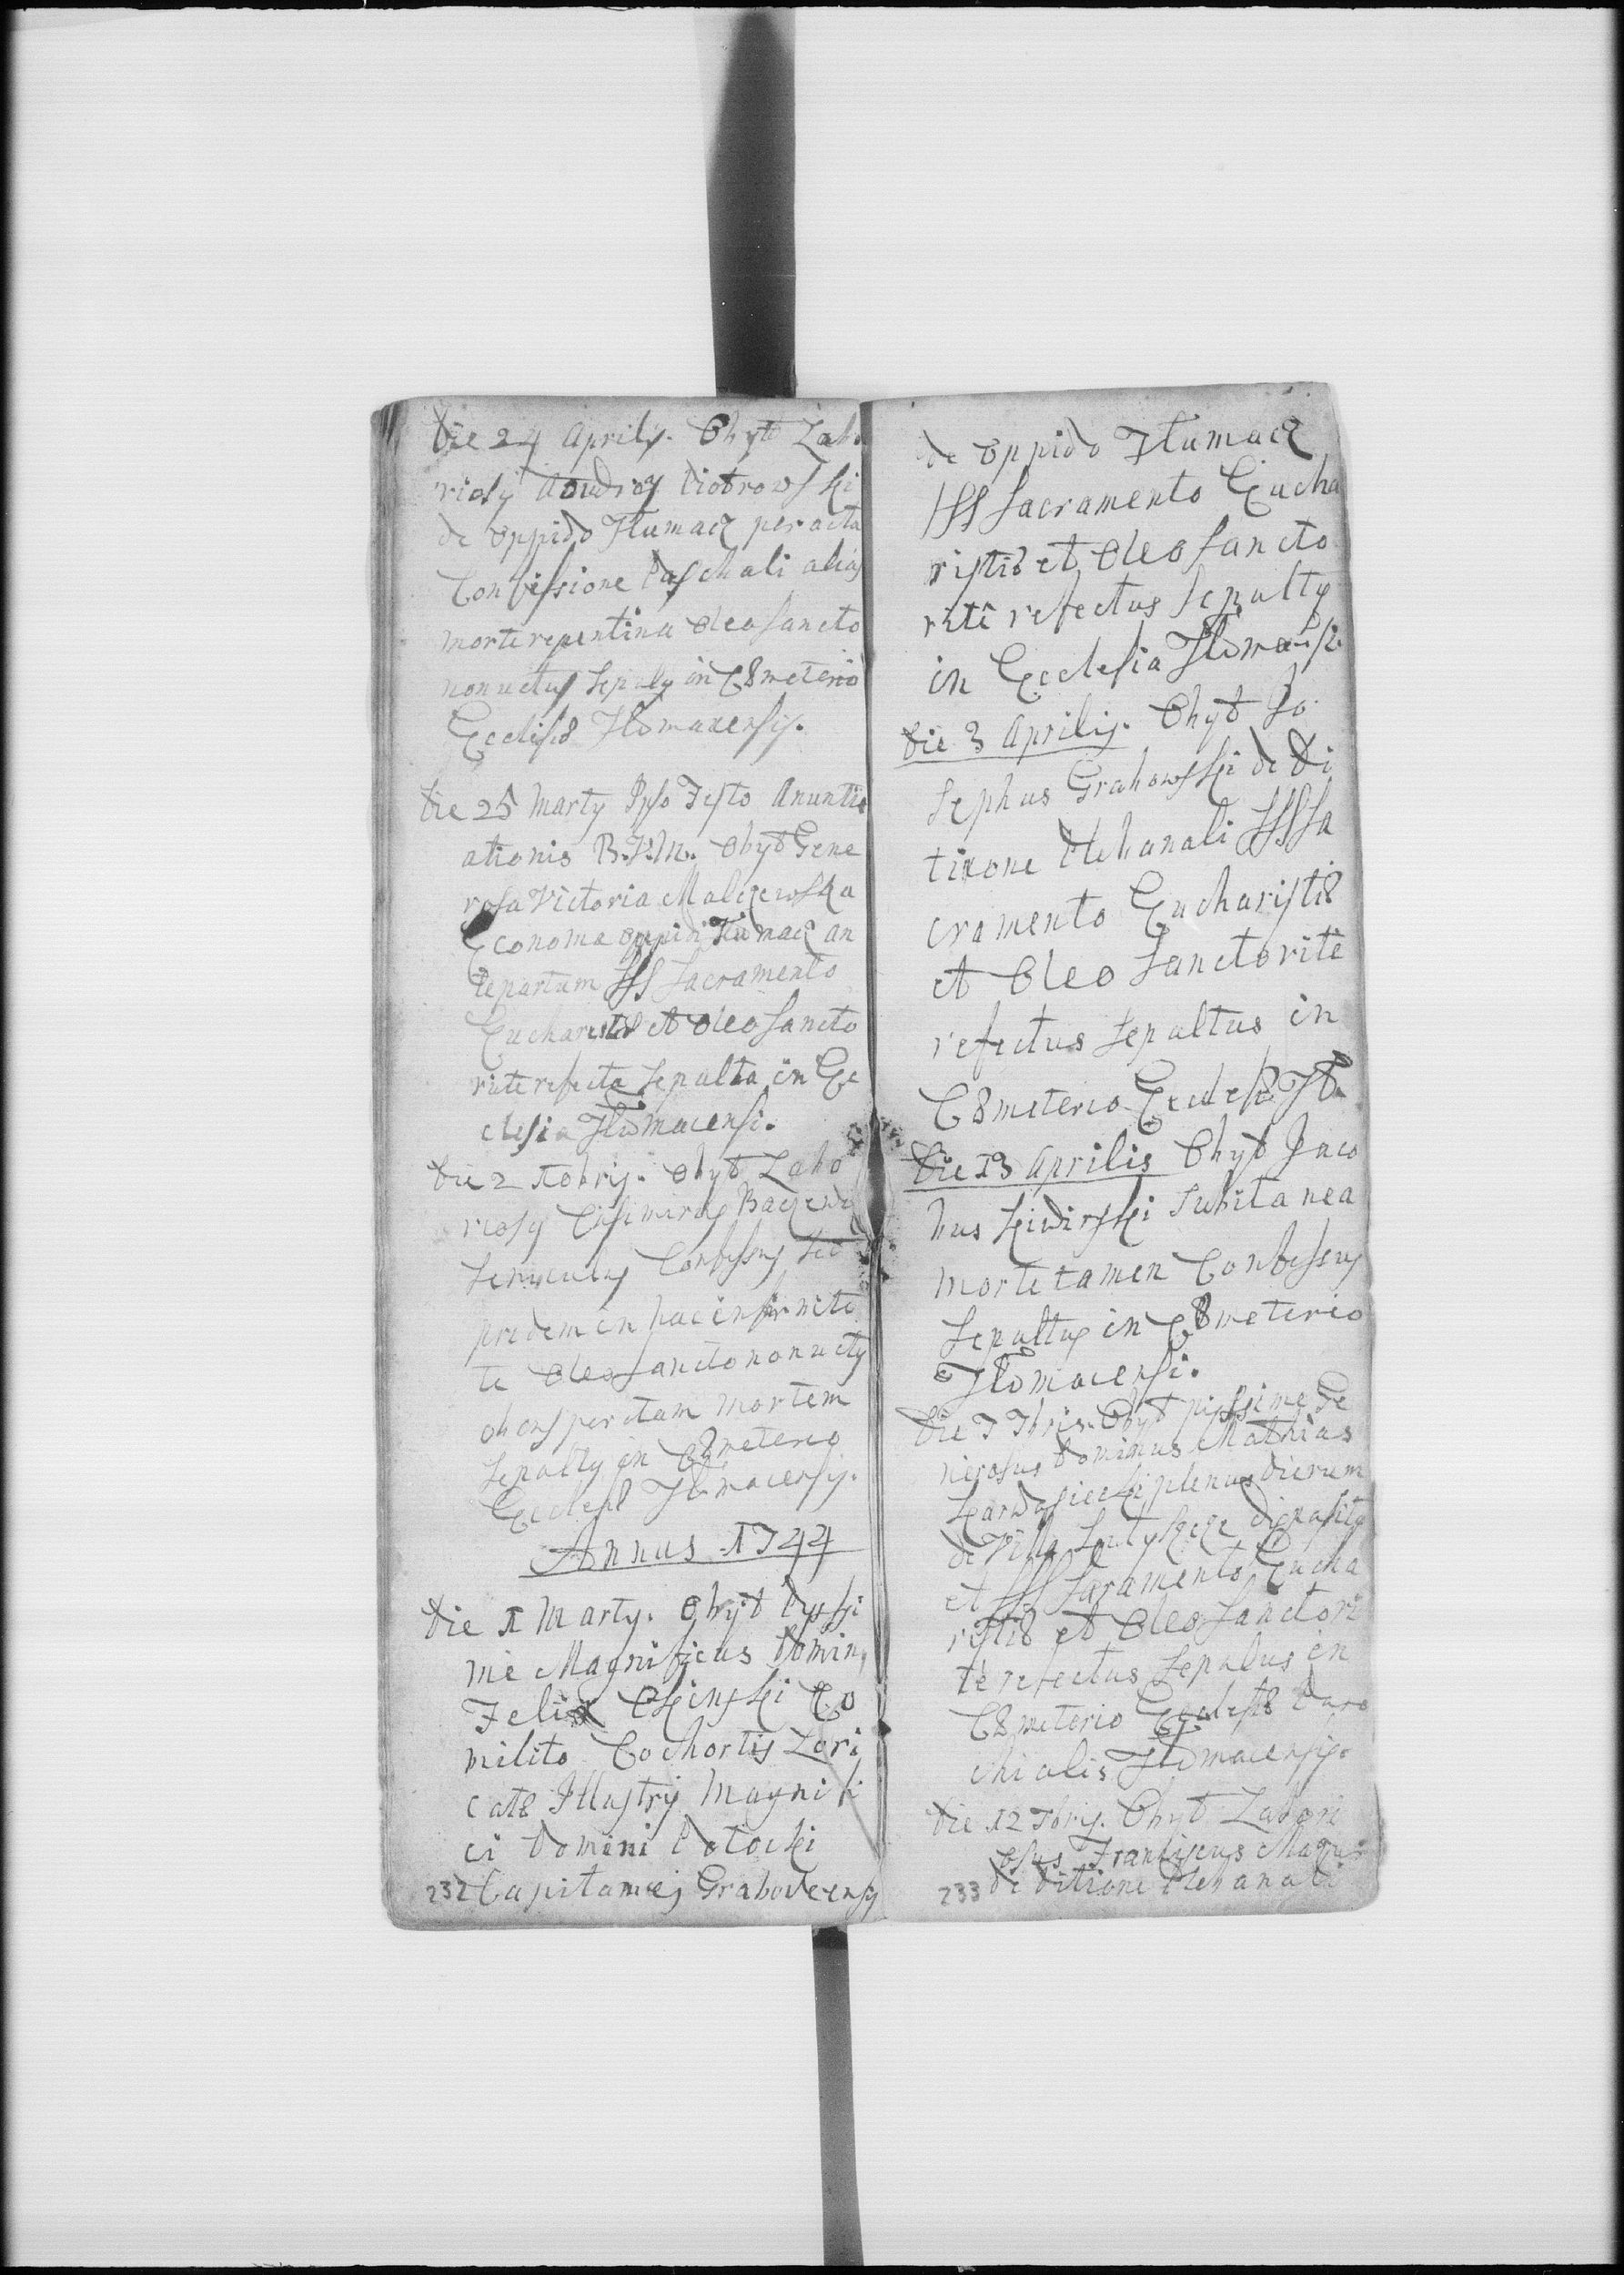 Die 24 Aprilis. Obyt Labo
riosy Andrej Piotrowski
de oppido Tłumacz peracta
Confessione Paschali alias
morte repentina oleo sancto
non uctus sepuly in Cæmeterio
Ecclesiæ Tłomacensis.
Die 25 Marty Ipso Festo Anuntia
ationis B.V.M. Obyt Gene
rosa Victoria Malczewska
Economa oppidi Tłumacz an
te partum SSS Sacramento
Eucharistiæ et oleo sancto
rite refecta sepulta in Ec
clesia Tłomacensi.
Die 2 Xobris. Obyt Labo
riosy Casimirus
Confessus
pridem in hac infirmita
te oleo sancto non uctus
obens mortem
sepulty in Cæmeterio
Ecclesiæ Tłomacensis.
Annus 1744
Die 1 Marty. Obyt Pyssi
me Magnificus Domin9
Felix Co
milito Cochortis Lori
catæ Illustris Magnifi
ci Domini Potocki
232 Capitanei Grabovecensis
de oppido Tłumacz
SSS Sacramento Eucha
ristiæ et oleo sancto
rite refectus sepulty
in Ecclesia Tłomacensi.
Die 3 Aprilis. Obyt Jo
sephus Grabowski de Di
tixone Plebanali SSS Sa
cramento Eucharistiæ
et oleo sancto rite
refectus sepultus in
Cæmeterio Ecclesiæ Tło
Die 13 Aprilis Obyt Jaco
bus Kiwirski subitanea
morte tamen Confessus
sepultus in Cæmeterio
Tłomacensi.
Die 7 7bris. Obyt pissime Ge
nerosus Dominus Mathias
plenus dierum
de Villa disposity
et SSS Sacramento Eucha
ristiæ et oleo sancto ri
te refectus sepulus in
Cæmeterio Ecclesiæ Paro
chialis Tłomacensis.
Die 12 7bris. Obyt Labori
osus Franciscus
233 de Ditione Plebanali